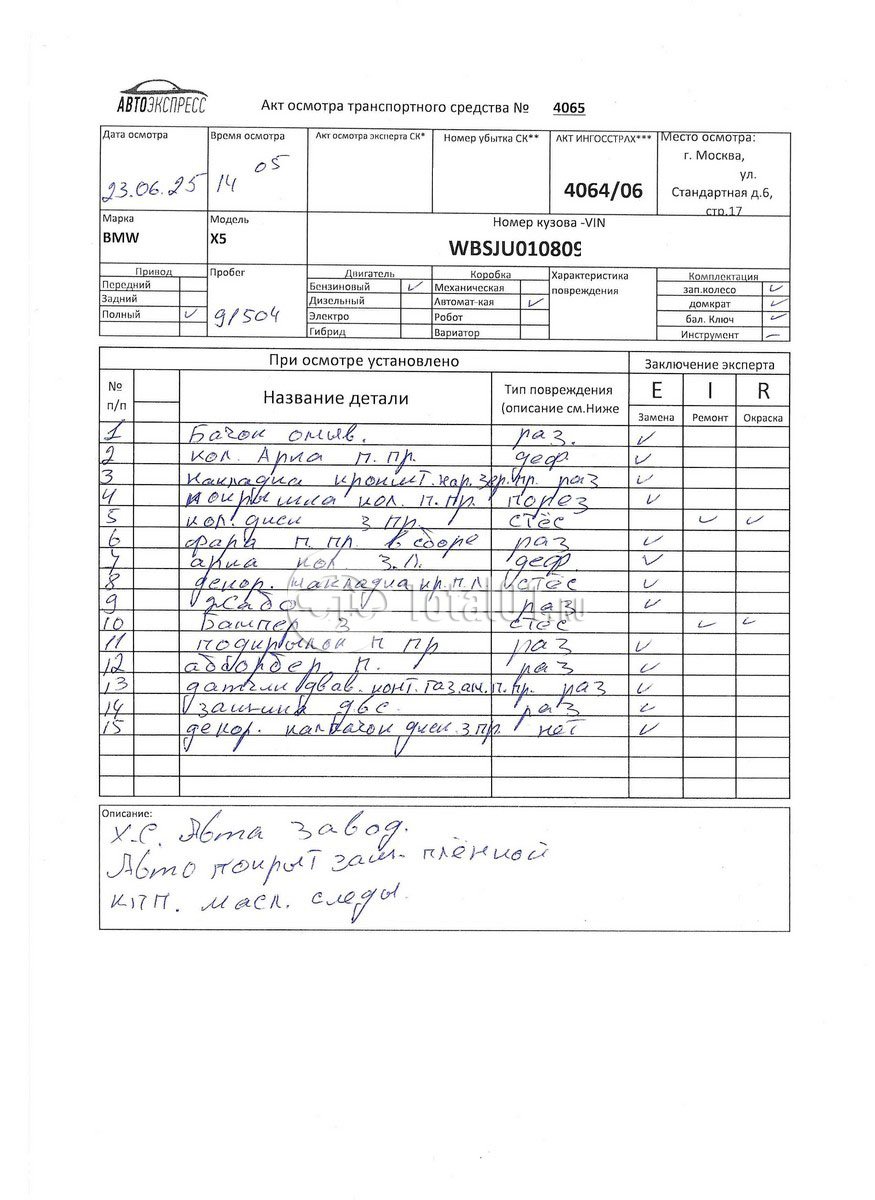 АВТОЭКСПРЕСС
Акт осмотра транспортного средства № 4065
Дата осмотра
23.06.25
Время осмотра
14 05
Акт осмотра эксперта СК*
Номер убытка СК**
АКТ ИНГОССТРАХ***
4064/06
Место осмотра:
г. Москва,
ул.
Стандартная д.6,
стр.17
Марка
BMW
Модель
X5
Номер кузова -VIN
WBSJU010809
Привод
Передний
Задний
Полный ✓
Пробег
91504
Двигатель
Бензиновый ✓
Дизельный
Электро
Гибрид
Коробка
Механическая
Автомат-кая ✓
Робот
Вариатор
Характеристика
повреждения
Комплектация
зап.колесо ✓
домкрат ✓
бал. Ключ ✓
Инструмент –
При осмотре установлено
Заключение эксперта
№
п/п
Название детали
Тип повреждения
(описание см.Ниже
E I R
Замена Ремонт Окраска
1 Бачок омыв. раз. ✓
2 кол. Арка п. пр. деф ✓
3 накладка кроншт. нар. зер. пр. раз ✓
4 покрышка кол. п. пр. порез ✓
5 кол. диск з пр. стёс ✓ ✓
6 фара п. пр. в сборе раз ✓
7 арка кол з.л. деф. ✓
8 декор. накладка кр. п л стёс ✓
9 Жабо раз ✓
10 Бампер з стёс ✓ ✓
11 подкрылок п пр раз ✓
12 абборбер п. раз ✓
13 датчик двав. конт. газ. ам. п. пр. раз ✓
14 защита двс. раз ✓
15 декор. колпачок диск. з пр. нет ✓
Total01.ru
Описание:
Х.С. Авто завод.
Авто покрыт защ. плёнкой
КПП. масл. следы.